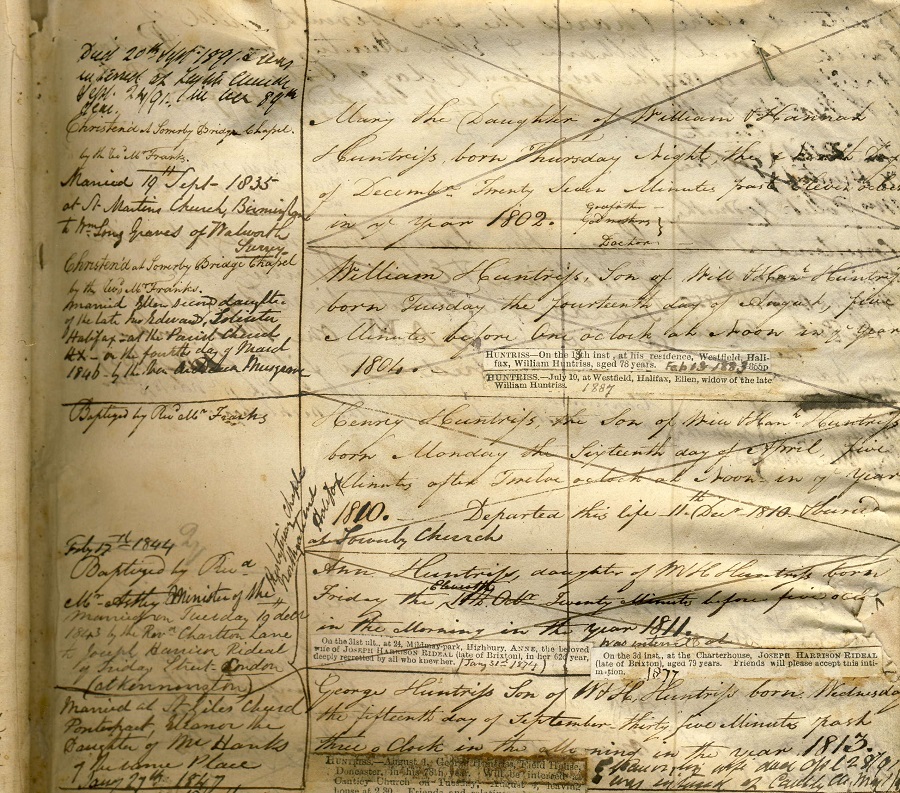 Died 20th Sept 1891 & was
interred at
Sept. 24/91. in her 89th
year.
Christen'd at Sowerby Bridge Chapel.
by the Revd Mr Franks.
Married 19th Sept - 1835
at St Martins Church, Birmingham
to Wm Long Graves of Walworth
Surrey
Mary the Daughter of William & Hannah
Huntriss, born Thursday Night, the
of December Twenty Seven Minutes past Eleven
in ye Year 1802.
Godfather
Godmothers
Doctor
Christen'd at Sowerby Bridge Chapel
by the Revd Mr Franks.
Married Ellen second daughter
of the late Mr Edward, Solicitor
Halifax - at the Parish Church
Hx - on the fourth day of March
1846 by the Ven Musgrave
William Huntriss, Son of Will & Hanh Huntriss
born Tuesday the fourteenth day of August, five
Minutes before One oclock at Noon in ye Year
1804.
HUNTRISS—On the 13th inst, at his residence, Westfield, Hali-
fax, William Huntriss, aged 78 years. Feb 13 1883
HUNTRISS.—July 10, at Westfield, Halifax, Ellen, widow of the late
William Huntriss. 1887
Baptized by Revd Mr Franks
Henry Huntriss, the Son of Will & Hanh Huntriss
born Monday the Sixteenth day of April, five
Minutes after Twelve oclock at Noon in ye Year
1810. Departed this life 11th Decr 1810 buried
at Sowerby Church
Feby 17th 1844
Baptized by Revd
Mr Minister of the
Northgate End
Halifax
Married on Tuesday 19 Decr
1843 by the Revd Charlton Lane
Joseph Harrison Rideal
of Friday Street London
(at Kennington)
Ann Huntriss, daughter of W & H Huntriss born
Friday the Eleventh Octr Twenty Minutes before five oclo
in the Morning in the year 1811.
was interred at
On the 31st ult., at 24, Mildmay-park, Highbury, ANNE, the beloved
wife of JOSEPH HARRISON RIDEAL (late of Brixton), in her 62d year,
deeply regretted by all who knew her. (Jany 31st 1874)
On the 3d inst, at the Charterhouse, JOSEPH HARRISON RIDEAL
(late of Brixton), aged 79 years. Friends will please accept this inti-
mation. 1877
Married at St Giles Church
Pontefract Eleanor the
Daughter of Mr Hanks
of the same Place
Jany 27th 1847
George Huntriss Son of W & H Huntriss born, Wednesday
the fifteenth day of September thirty five Minutes past
three o Clock in the Morning in the year 1813.
HUNTRISS.—August 1, George Huntriss, Field House,
Doncaster, in his 78th year. Will be interred at
Cantley Church on Tuesday, August 4, leaving
house at 2.30. Friends